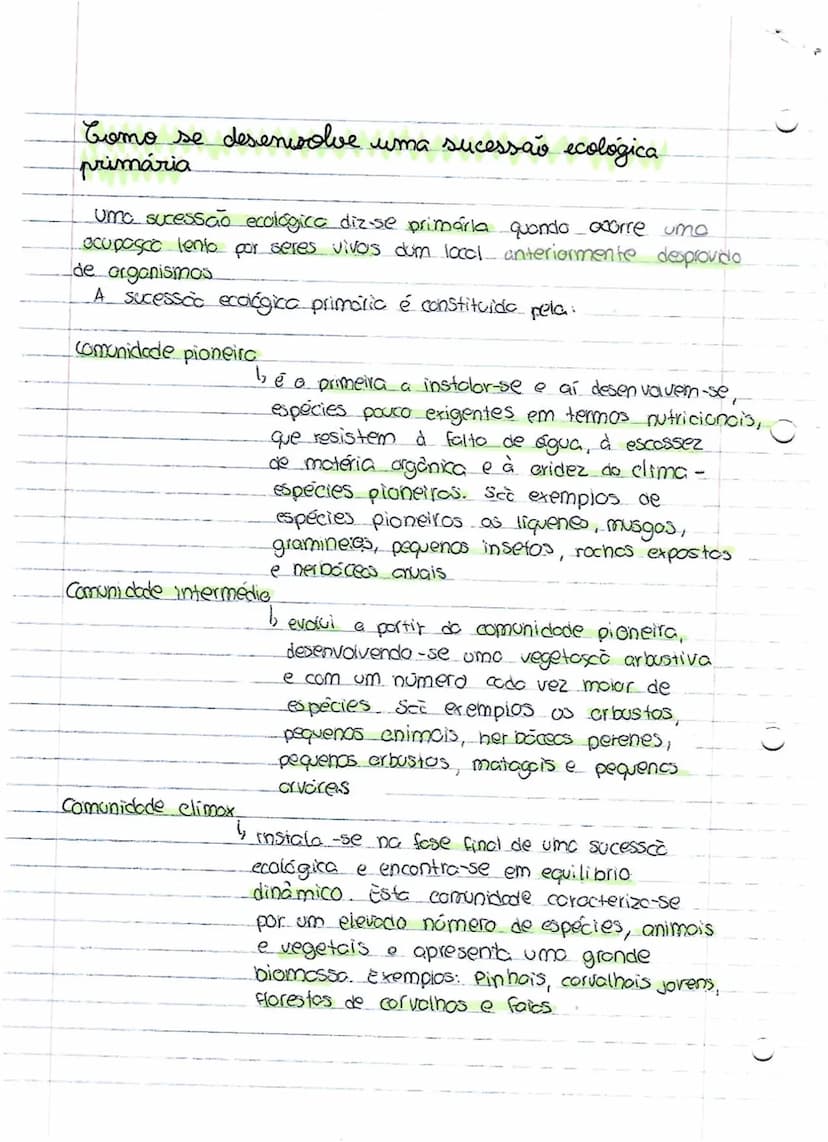 Como se desenvolve uma sucessão ecológica
primária
Uma sucessão ecológica diz-se primária quando ocorre uma
ocupação lenta por seres vivos dum local anteriormente desprovido
de organismos
A sucessão ecológica primária é constituída pela:
Comunidade pioneira
↳ é a primeira a instalar-se e aí desenvolvem-se,
espécies pouco exigentes em termos nutricionais,
que resistem à falta de água, à escassez
de matéria orgânica e à aridez do clima -
espécies pioneiras. São exemplos de
espécies pioneiras os líquenes, musgos,
gramíneas, pequenos insetos, rochas expostas
e herbáceas anuais
Comunidade intermédia
↳ evolui a partir da comunidade pioneira,
desenvolvendo-se uma vegetação arbustiva
e com um número cada vez maior de
espécies. São exemplos os arbustos,
pequenos animais, herbáceas perenes,
pequenos arbustos, matagais e pequenas
árvores
Comunidade climax
↳ instala-se na fase final de uma sucessão
ecológica e encontra-se em equilíbrio
dinâmico. Esta comunidade caracteriza-se
por um elevado número de espécies, animais
e vegetais e apresenta uma grande
biomassa. Exemplos: Pinhais, carvalhais jovens,
florestas de carvalhos e faias